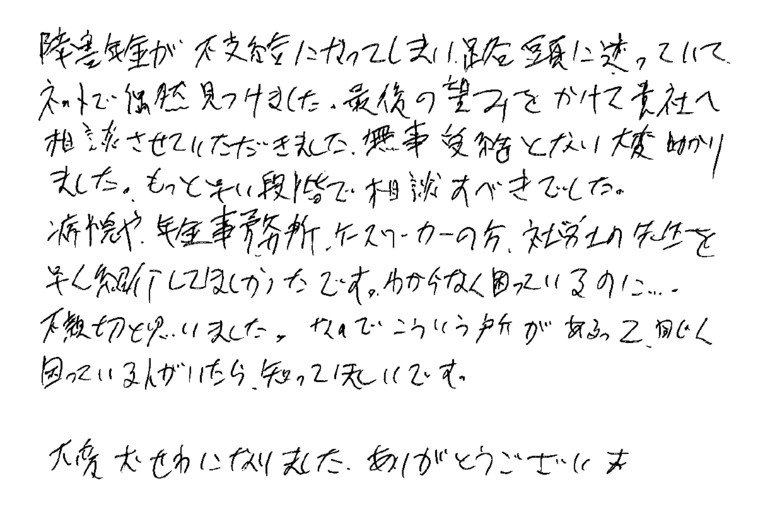 障害年金が不支給になってしまい、路頭に迷っていて、
ネットで偶然見つけました。最後の望みをかけて貴社へ
相談させていただきました。無事受給となり大変助かり
ました。もっと早い段階で相談すべきでした。
病院や、年金事務所、ケースワーカーの方、社労士の先生を
早く紹介してほしかったです。わからなく困っているのに…。
不親切と思いました。なのでこういう所があるって、同じく
困っている人がいたら、知ってほしいです。
大変おせわになりました。ありがとうございま